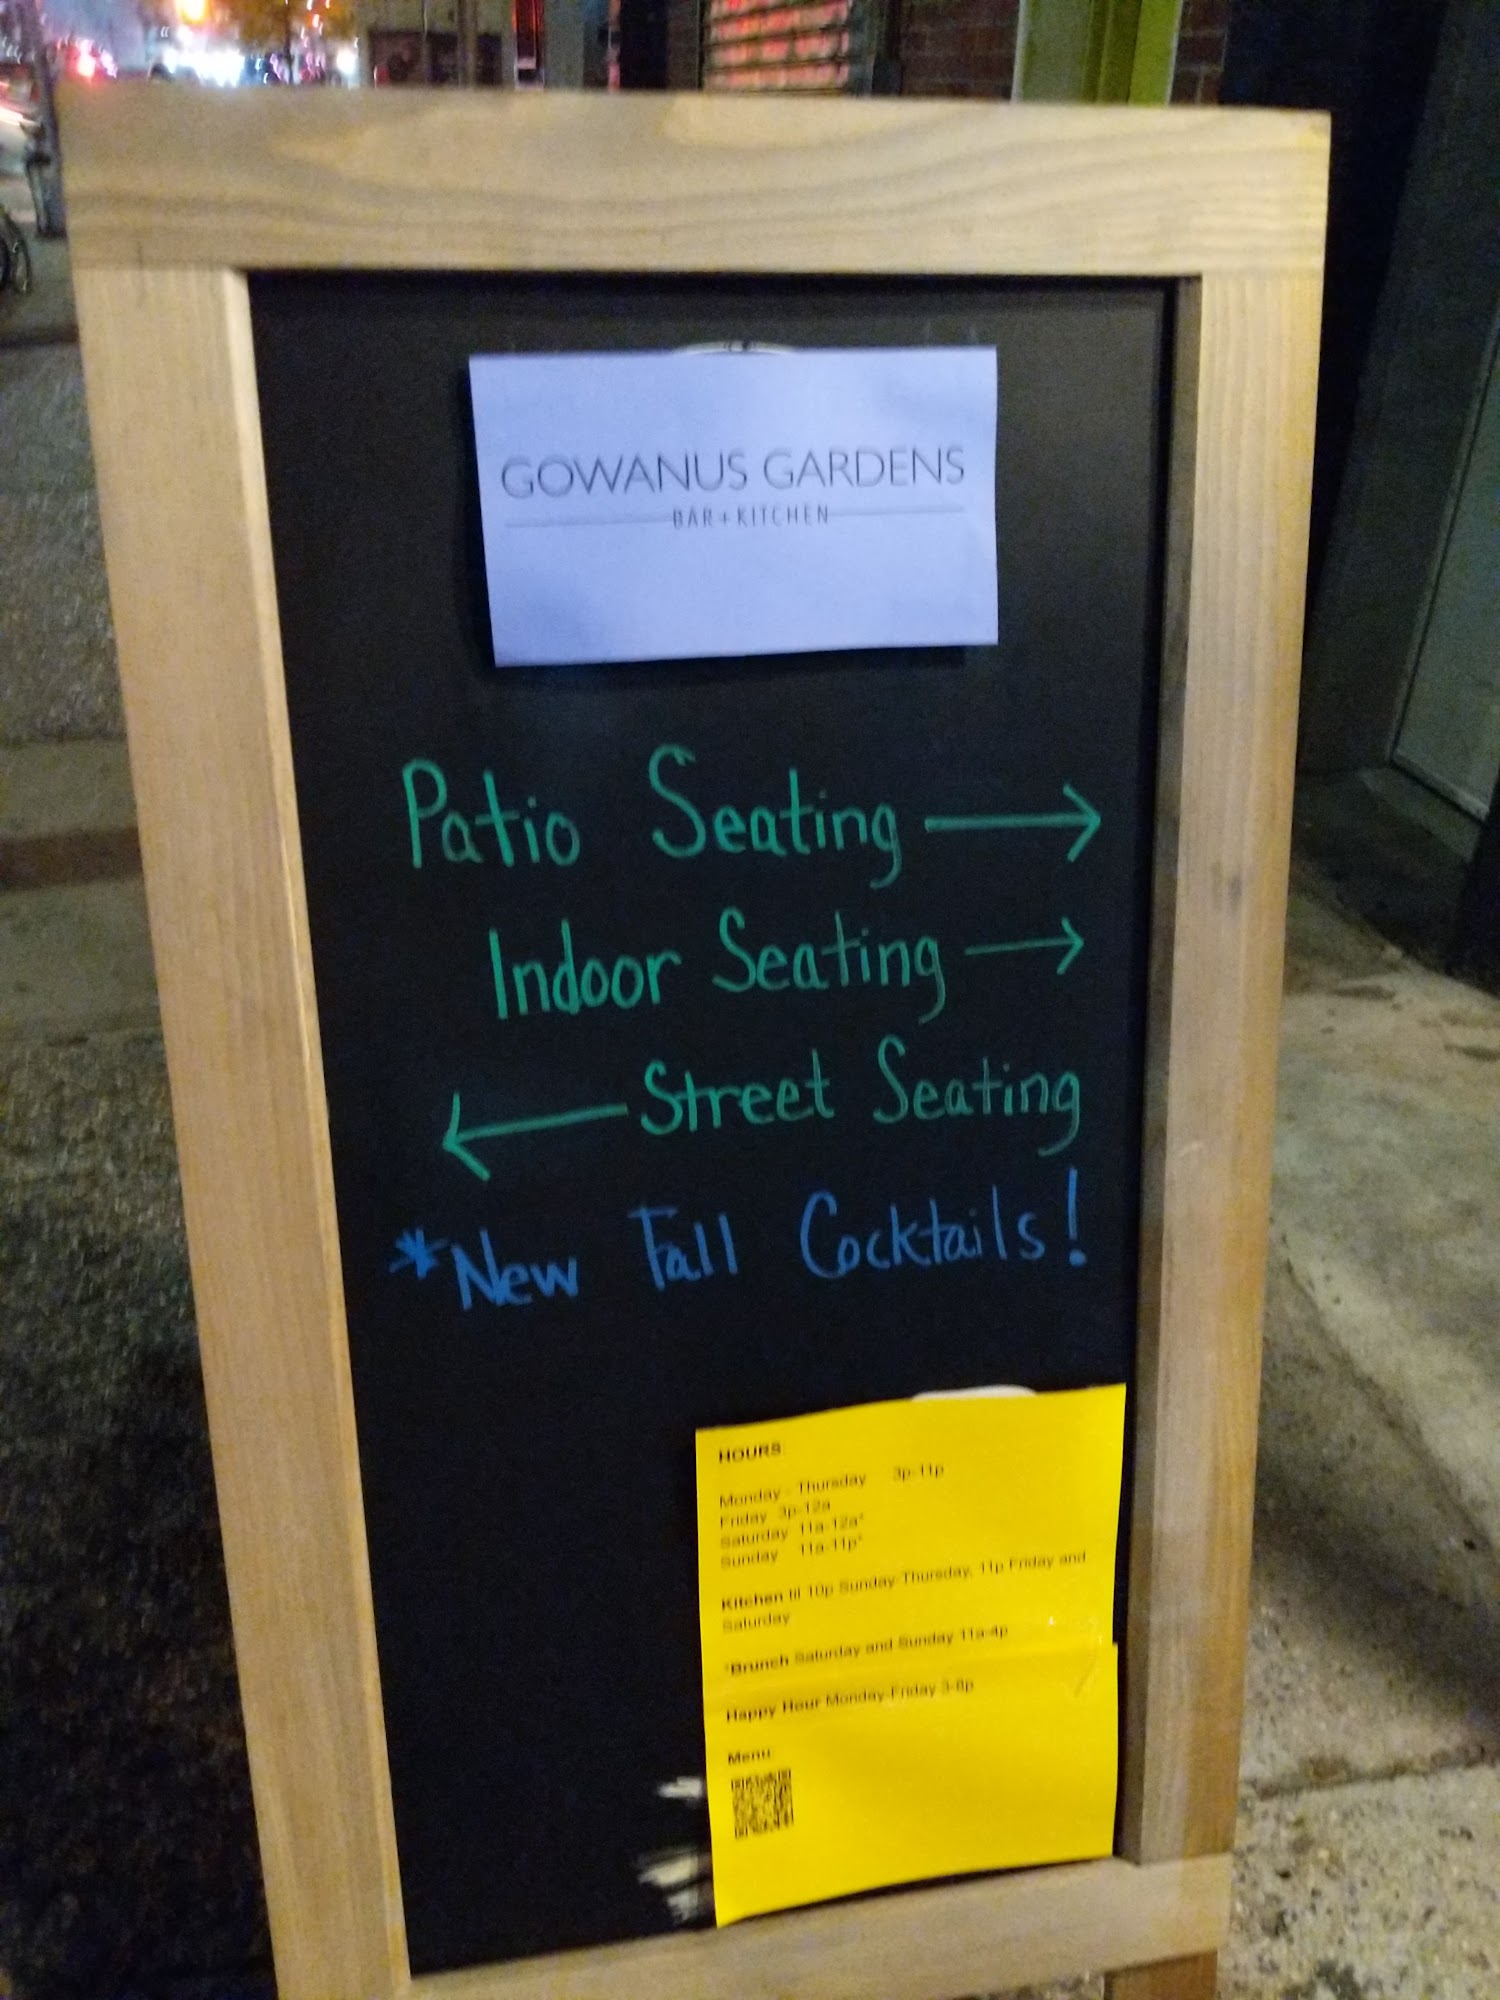 GOWANUS GARDENS
BAR + KITCHEN
Patio Seating →
Indoor Seating →
← Street Seating
*New Fall Cocktails!
HOURS
Monday - Thursday 3p-11p
Friday 3p-12a
Saturday 11a-12a*
Sunday 11a-11p*
Kitchen til 10p Sunday-Thursday, 11p Friday and
Saturday
*Brunch Saturday and Sunday 11a-4p
Happy Hour Monday-Friday
Menu